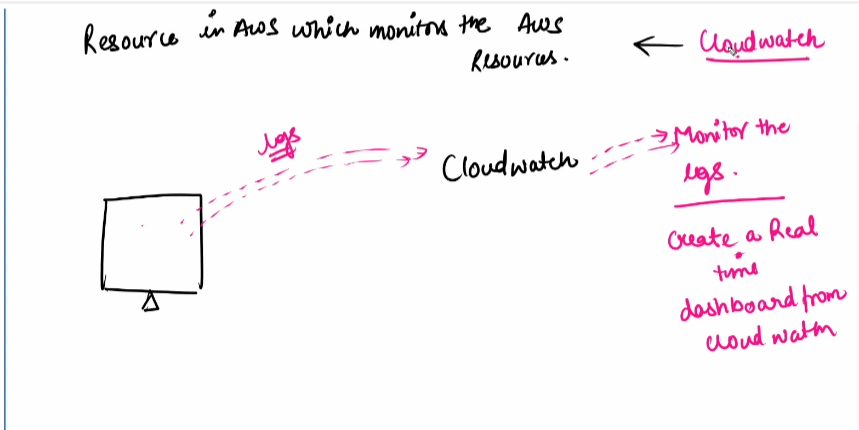 Resource in AWS which monitors the AWS
Resources.
Cloudwatch
logs
Cloudwatch
Monitor the
logs.
Create a Real
time
dashboard from
cloud watch